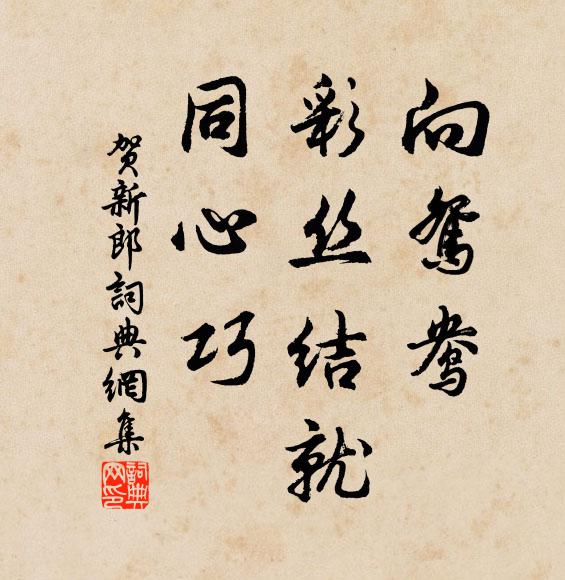 向鸳鸯
彩丝结就
同心巧
贺新郎詞典網集
詞典网印